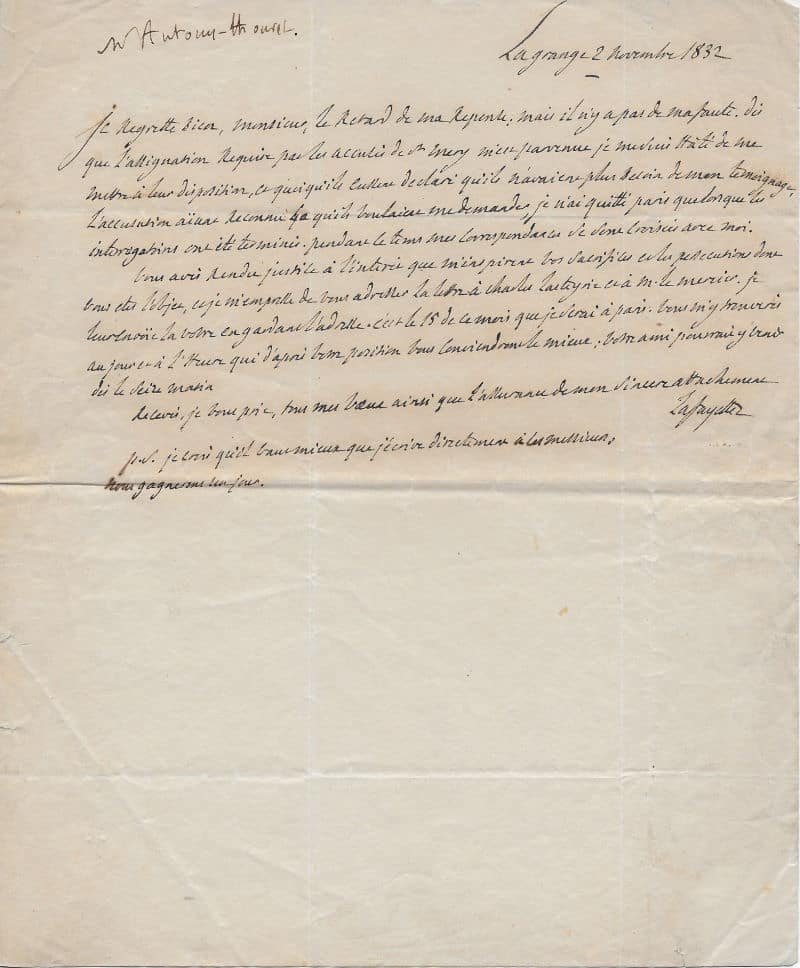 Mr Antony-thouret.
Lagrange 2 novembre 1832
je Regrette bien, monsieur, le Retard de ma Reponse; mais il n'y a pas de ma faute. dès
que l'assignation Requise par les accusés de St mery m'est parvenue je me suis Hâté de me
mettre à leur disposition, et quoiqu'ils eussent declaré qu'ils n'avaient plus besoin de mon temoignage,
l'accusation aïant Reconnu ce qu'ils voulaient me demander, je n'ai quitté paris que lorsque les
interrogatoires ont été terminés. pendant ce tems nos correspondances se sont croisées avec moi.
Vous avés Rendu justice à l'interêt que m'inspirent vos sacrifices et les persecutions dont
vous etes l'objet, et je m'empresse de vous adresser la lettre à charles lasteyrie et à m. le mercier. je
leur envoïe la votre en gardant l'adresse. c'est le 15 de ce mois que je serai à paris. vous m'y trouverés
au jour et à l'Heure qui d'après votre position vous conviendront le mieux; votre ami pourrait y venir
dès le seize matin
Recevés, je vous prie, tous mes vœux ainsi que l'assurance de mon sincere attachement
Lafayette
p.s. je crois qu'il vaut mieux que j'ecrive directement à ces messieurs,
nous gagnerons un jour.